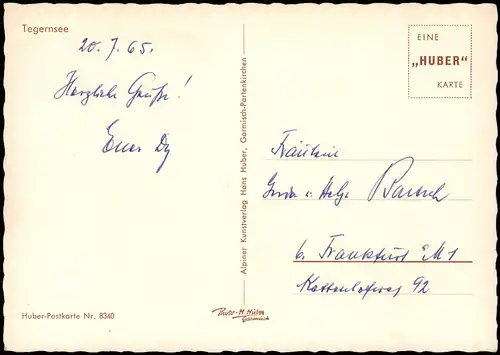 Tegernsee
20. 7. 65.
Herzliche Grüße!
Euer
EINE
„HUBER"
KARTE
Alpiner Kunstverlag Hans Huber, Garmisch-Partenkirchen
Fräulein
Gerda u. Helga Bartsch
6. Frankfurt a/M 1
Kettenhofweg 92
Huber-Postkarte Nr. 8340
Photo-H. Huber
Garmisch